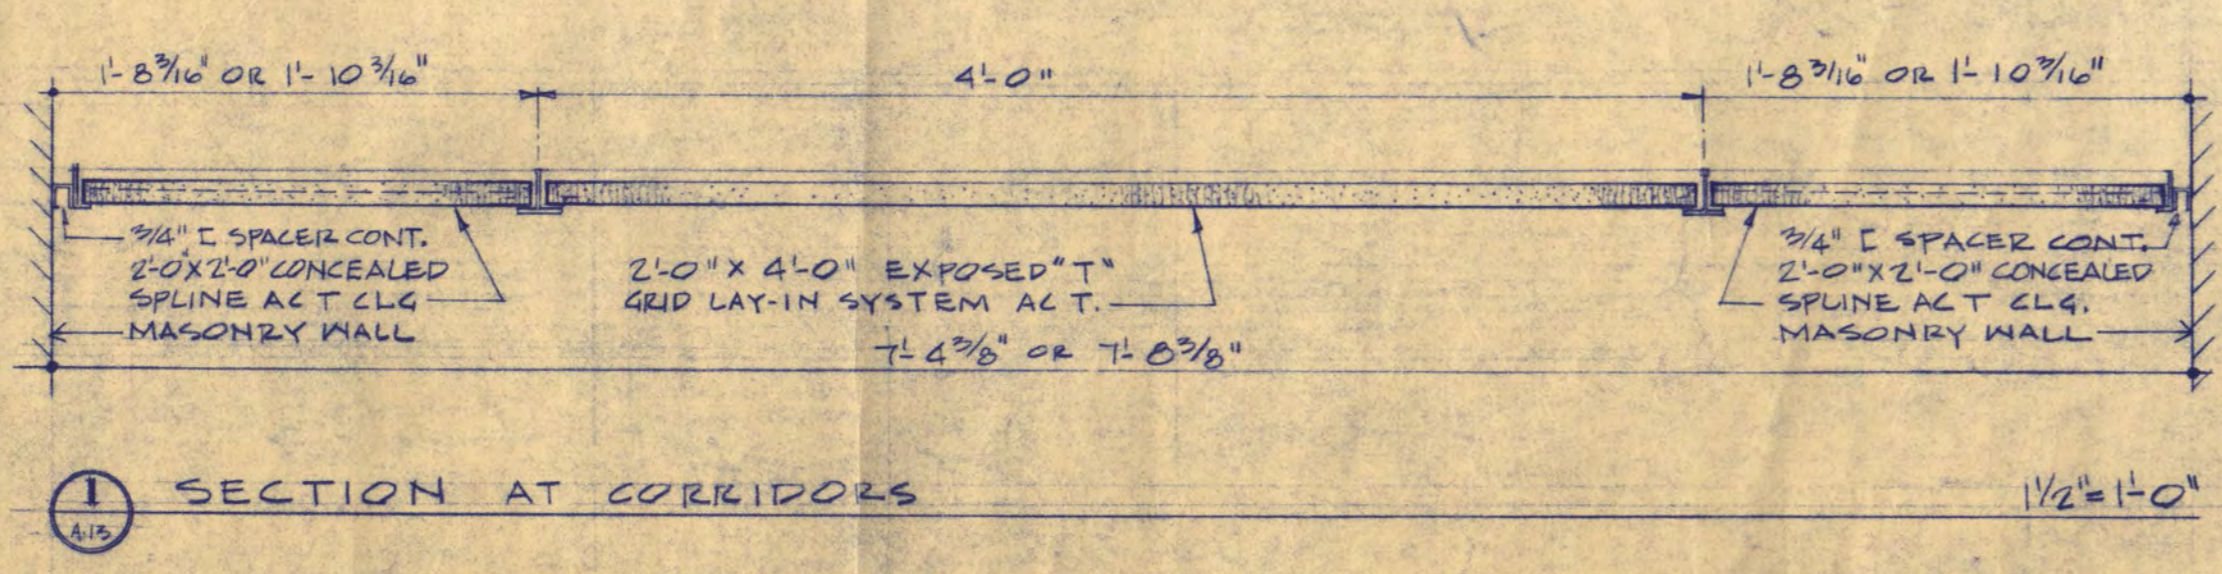 1'-8 3/16" OR 1'-10 3/16"
4'-0"
1'-8 3/16" OR 1'-10 3/16"
3/4" [ SPACER CONT.
2'-0"X2'-0" CONCEALED
SPLINE AC T CLG
MASONRY WALL
2'-0" X 4'-0" EXPOSED "T"
GRID LAY-IN SYSTEM AC T.
3/4" [ SPACER CONT.
2'-0"X2'-0" CONCEALED
SPLINE AC T CLG.
MASONRY WALL
7'-4 3/8" OR 7'-8 3/8"
1
A.13
SECTION AT CORRIDORS
1 1/2"=1'-0"